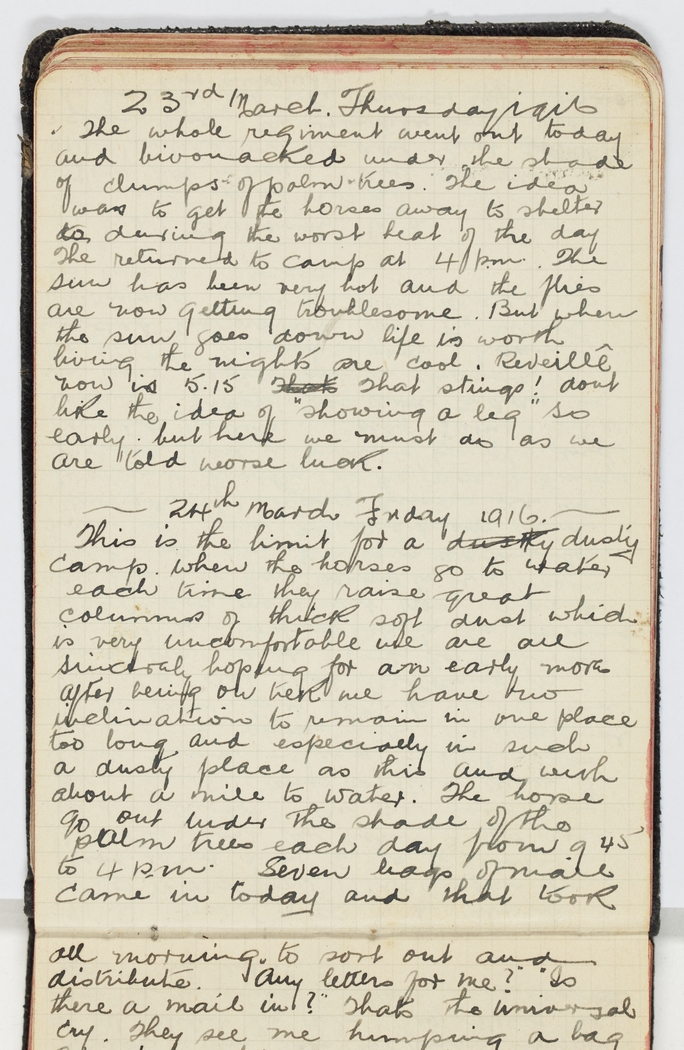 23rd March. Thursday 1916
The whole regiment went out today
and bivouacked under the shade
of clumps of palm trees. The idea
was to get the horses away to shelter
to deuring the worst heat of the day
The returned to camp at 4 p.m. The
sun has been very hot and the flies
are now getting troublesome. But when
the sun goes down life is worth
living the nights are cool. Reveillê
now is 5.15 That That stings! dont
like the idea of "showing a leg" so
early. but here we must do as we
are told worse luck.
— 24th March Friday 1916. —
This is the limit for a dusty dusty
camp. when the horses go to water
each time they raise great
columns of thick soft dust which
is very uncomfortable we are all
sinceraly hoping for an early move
after being on trek we have no
inclination to remain in one place
too long and especially in such
a dusty place as this and with
about a mile to water. The horse
go out under the shade of the
palm trees each day from 9 45
to 4 p.m. Seven bags of mail
came in today and that took
all morning. to sort out and
distribute. "Any letters for me?" "Is
there a mail in?" Thats the universal
cry. They see me humping a bag